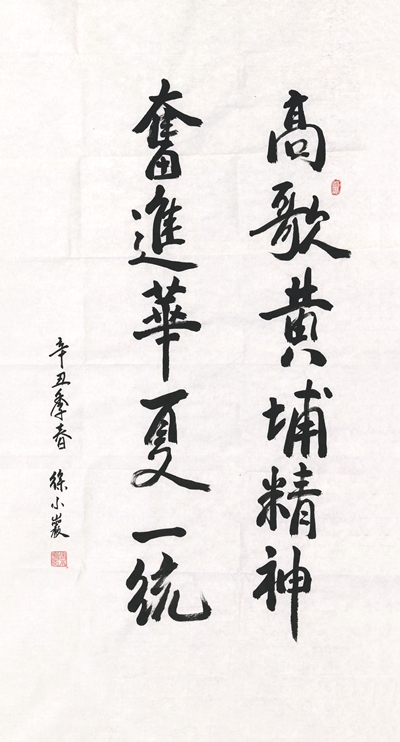 高歌黄埔精神
奮進華夏一統
辛丑季春 徐小巖